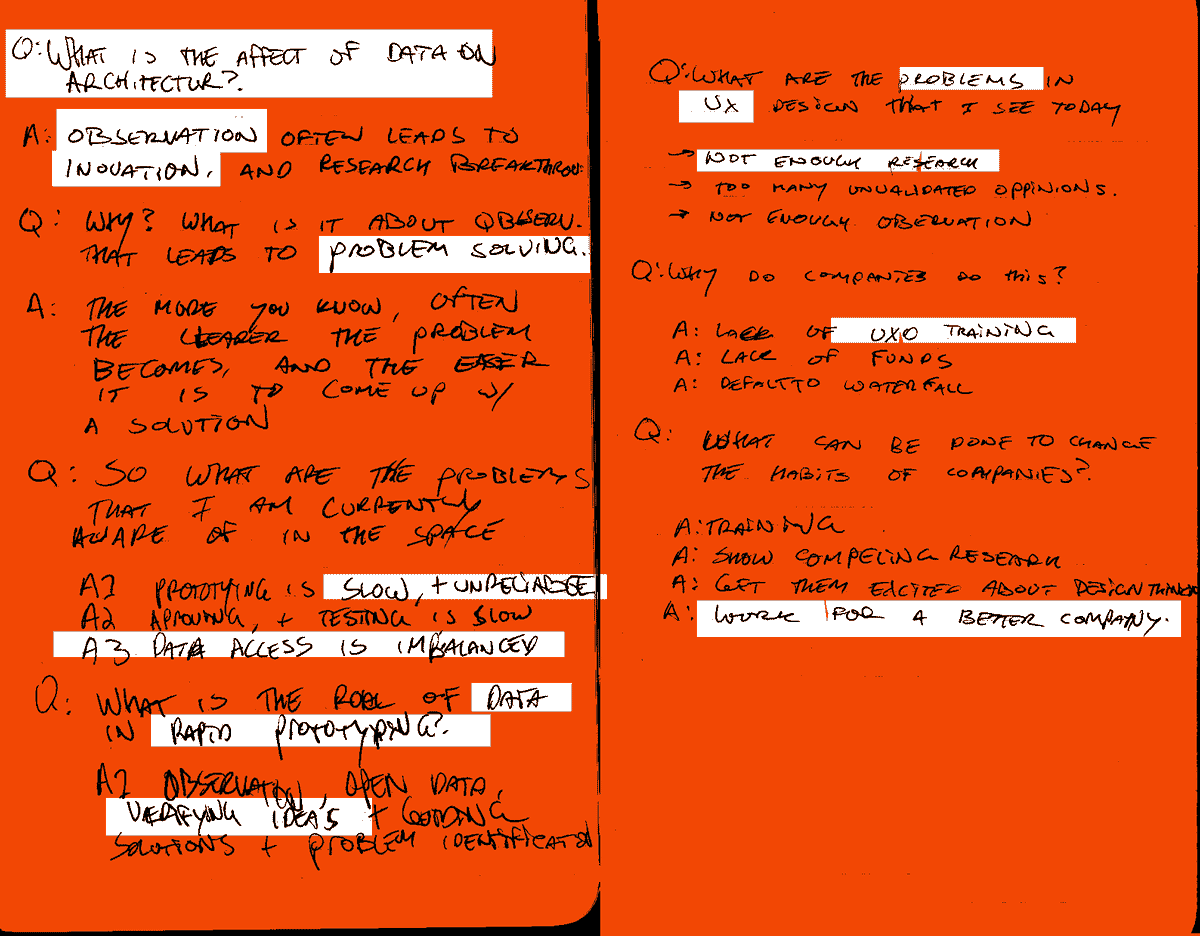 Q: WHAT IS THE AFFECT OF DATA ON
ARCHITECTUR?
A: OBSERVATION OFTEN LEADS TO
INOVATION, AND RESEARCH BREAKTHROU:
Q: WHY? WHAT IS IT ABOUT OBSERV.
THAT LEADS TO PROBLEM SOLVING.
A: THE MORE YOU KNOW, OFTEN
THE CLEARER THE PROBLEM
BECOMES, AND THE EASER
IT IS TO COME UP W/
A SOLUTION
Q: SO WHAT ARE THE PROBLEMS
THAT I AM CURRENTLY
AWARE OF IN THE SPACE
A1 PROTOTYING IS SLOW, + UNRELIABLE
A2 APROVING, + TESTING IS SLOW
A3 DATA ACCESS IS IMBALANCED
Q: WHAT IS THE ROEL OF DATA
IN RAPID PROTOTYPING?
A1 OBSERVATION, OPEN DATA,
VERIFYING IDEAS + GUIDING
SOLUTIONS + PROBLEM IDENTIFICATION
Q: WHAT ARE THE PROBLEMS IN
UX DESIGN THAT I SEE TODAY
→ NOT ENOUGH RESEARCH
→ TOO MANY UNVALIDATED OPPINIONS.
→ NOT ENOUGH OBERVATION
Q: WHY DO COMPANIES DO THIS?
A: LACK OF UXO TRAINING
A: LACK OF FUNDS
A: DEFALT TO WATERFALL
Q: WHAT CAN BE DONE TO CHANGE
THE HABITS OF COMPANIES?
A: TRAINING
A: SHOW COMPELING RESEARCH
A: GET THEM EXCITED ABOUT DESIGN THINKING
A: WORK FOR A BETTER COMPANY.